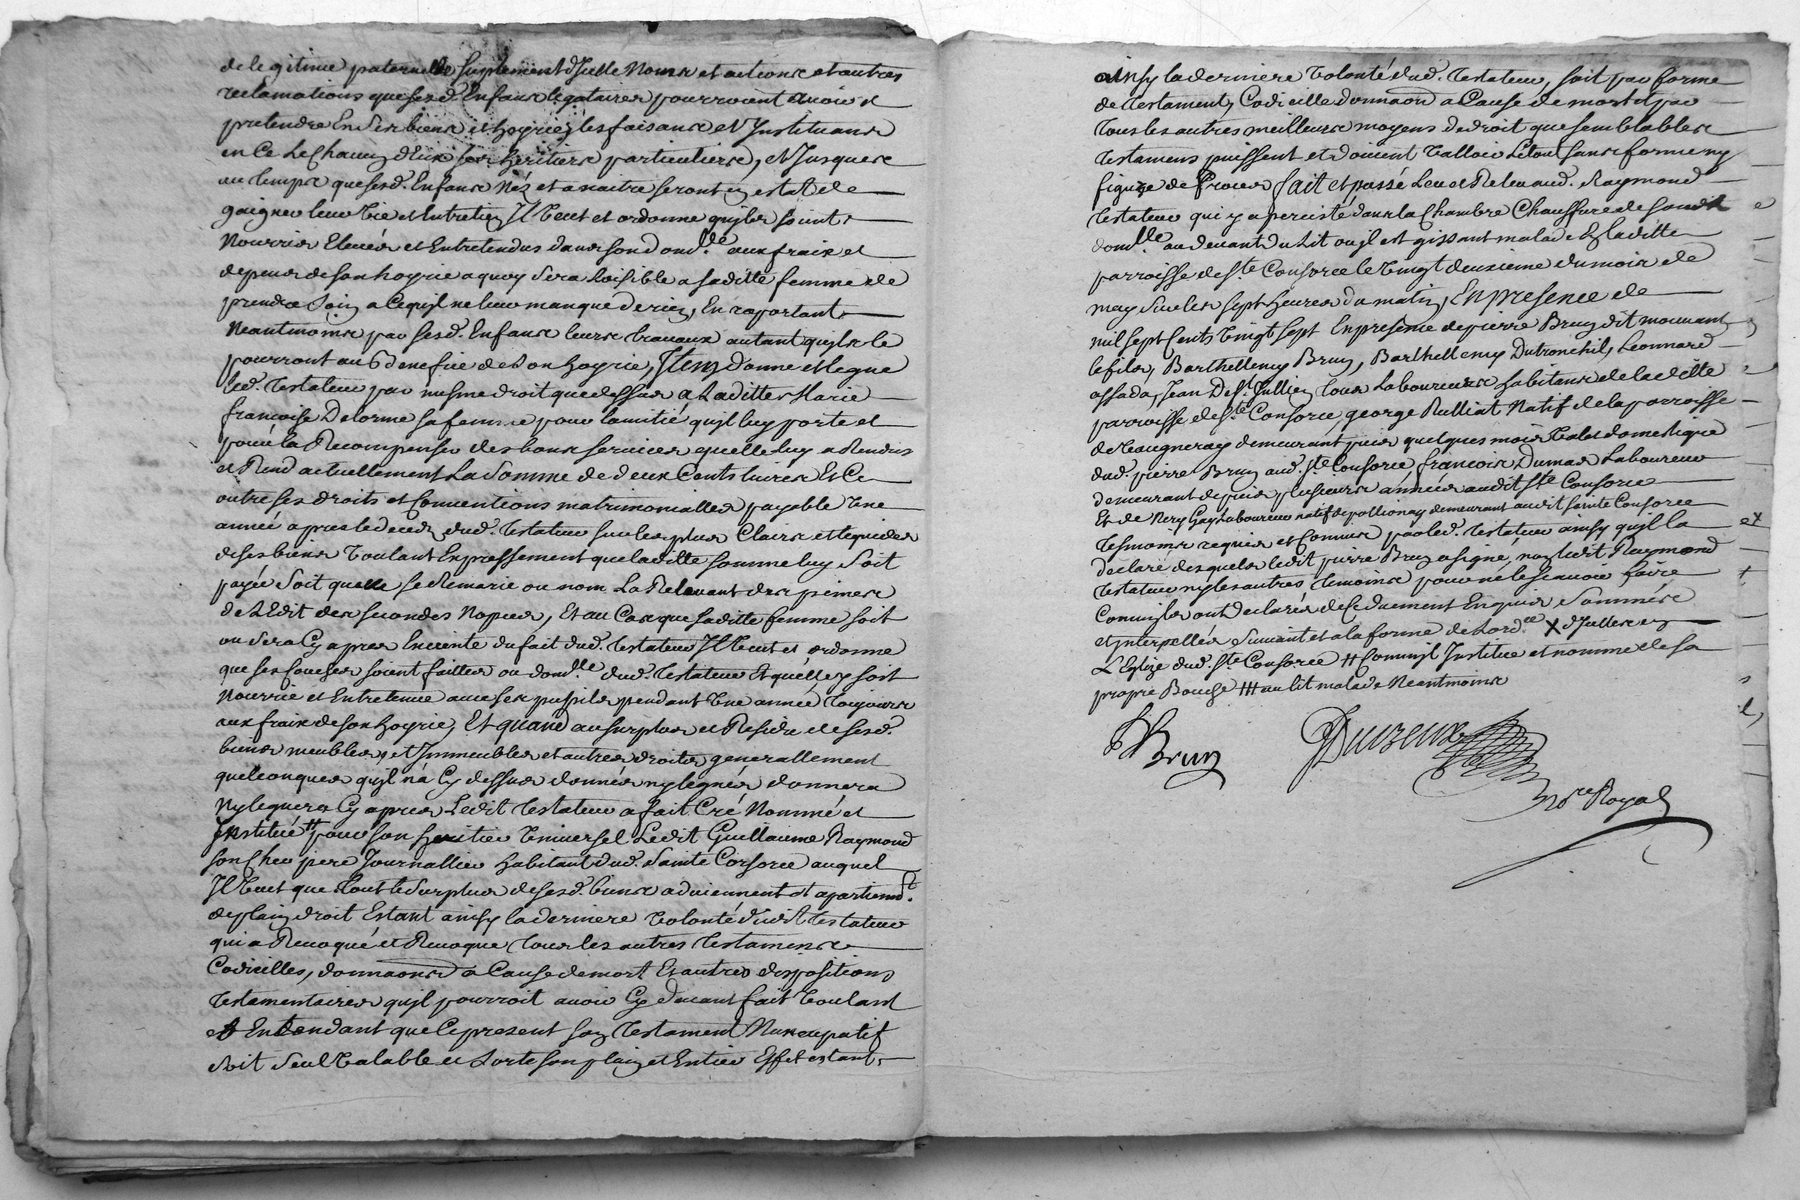 de legitime paternelle suplement d'Jcelle Noms et actions et autres
reclamations que sesd. Enfans legataires pourroient avoir et
pretendre En ses biens et hoyrie les faisans et Jnstituans
en Ce Le Chacun d'Eux ses heritiers particuliers, et Jusques
au temps que sesd. Enfans Néz et a naitre seront en estat de
gaigner leur vie et entretien Jl veut et ordonne qu'jls soient
Nourris Elevés et Entretenus dans son domlle. aux fraix et
depens de son hoyrie a quoy sera loisible a saditte femme de
prendre soin a Ce qu'jl ne leur manque de rien, En raportant
Neantmoins par sesd. Enfans leurs travaux autant qu'jls le
pourront au Benefice de son hoyrie, Jtem donne et legue
led. testateur par mesme droit que dessus a Laditte Marie
françoise Delorme sa femme pour lamitié qu'jl luy porte et
pour la Recompenser des bons services qu'elle luy a Rendus
et Rend actuellement La somme de deux Cents livres Et Ce
outre ses droits et Conventions matrimonialles payable une
année apres le deces dud. testateur sur les plus Clairs et liquides
de ses biens voulant Expressement que laditte somme luy soit
payée soit quelle se Remarie ou non La Relevant des peines
de L'Edit des secondes Nopces, Et au Cas que saditte femme soit
ou sera Cy apres Enceinte du fait dud. testateur Jl veut et ordonne
que ses Couches soient faittes au domlle. dud. testateur Et quelle y soit
Nourrie et Entretenue avec ses pupils pendant une année toujours
aux fraix de son hoyrie, Et quand au surplus et Residu de sesd.
biens meubles, et Jmmeubles et autres droits generallement
quelconques qu'jl n'a Cy dessus donnés ny legués donnera
Ny leguera Cy apres Ledit testateur a fait Créé Nommé et
Jnstitué # pour son heritier universel Ledit Guillaume Raymond
son Cher pere Journallier habitant dud. Sainte Consorce auquel
Jl veut que tout le surplus de sesd. biens adviennent et apartiennt.
de plain droit Estant ainsy la derniere volonté dudit testateur
qui a Revoqué et Revoque tous les autres testamens
Codicilles, donnaons a Cause de mort Et autres dispositions
testamentaires qu'jl pourroit avoir Cy devant fait voulant
et Entendant que Ce present son testament Nuncupatif
soit seul valable et sorte son plain et Entier Effet estant
ainsy la derniere volonté dud. testateur, soit par forme
de testament, Codicille donnaon a Cause de mort et par
tous les autres meilleurs moyens de droit que semblables
testamens puissent et doivent valloir Le tout sans forme ny
figure de Proces fait et passé Leu et Releu aud. Raymond
testateur qui y a percisté dans la Chambre Chauffure de sondit
domlle au devant du lit ou jl est gissant malade En laditte
parroisse de Ste Consorce le vingt deuxieme du mois de
may sur les sept heures du matin, En presence de
mil sept Cents vingt sept En presence de pierre Brun dit mounant
le fils, Barthellemy Brun, Barthellemy Dutronchil, Leonnard
assada, Jean De St. Jullien tous Laboureurs habitans de laditte
parroisse de Ste Consorce, george Rulliat Natif de la parroisse
de Vaugneray demeurant puis quelques mois valet domestique
dud. pierre Brun aud. Ste Consorce, francois Dumas Laboureur
demeurant depuis plusieurs années audit Ste Consorce
Et de Nery Gay Laboureur natif de pollionay demeurant audit sainte Consorce
tesmoins requis et Connus par led. testateur ainsy qu'jl la
declaré desquels ledit pierre Brun a signé, non ledit Raymond
testateur ny les autres temoins pour ne le scavoir faire
Comme jls ont declarés de Ce duement Enquis Sommés
et Jnterpellés suivant et a la forme de Lordce X d'Jcelle En
L'Eglize dud. Ste Consorce # Comme jl Jnstitue et nomme de sa
propre Bouche ### au lit malade Neantmoins
PBrun
Duvreux
Nore Royal